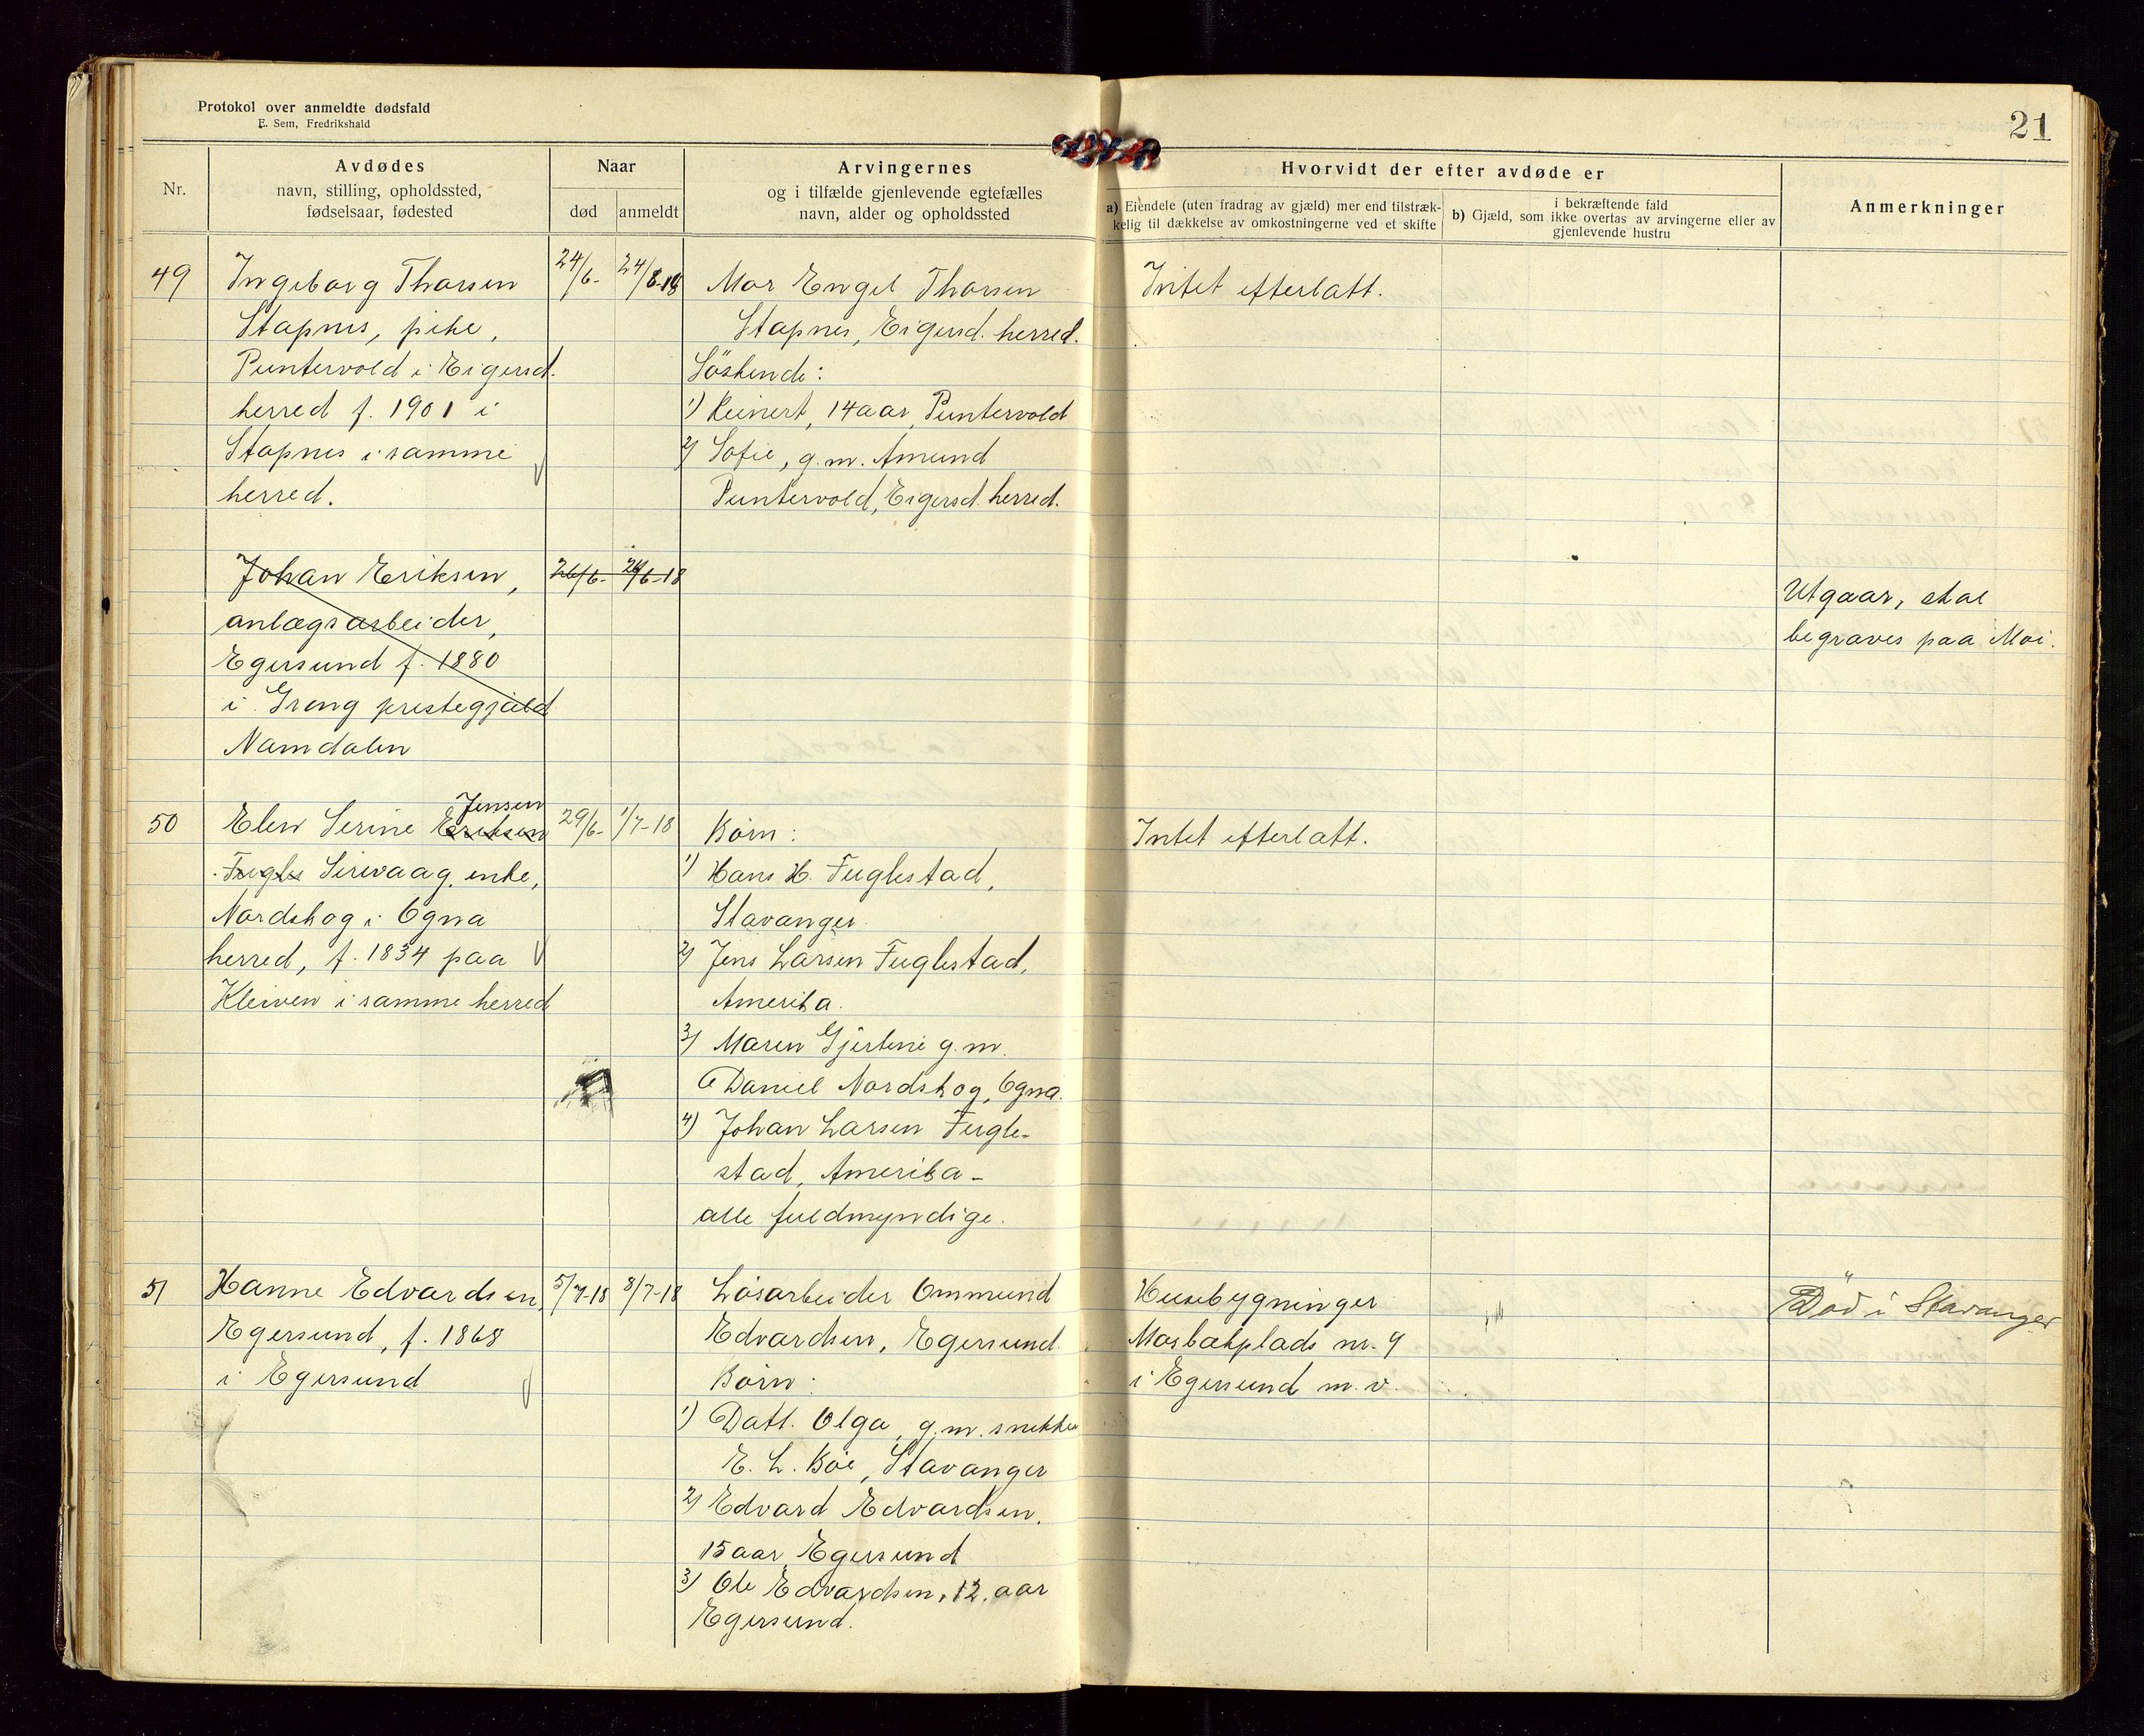 Protokol over anmeldte dødsfald
E. Sem, Fredrikshald
21
Nr.
Avdødes
navn, stilling, opholdssted,
fødselsaar, fødested
Naar
død
anmeldt
Arvingernes
og i tilfælde gjenlevende egtefælles
navn, alder og opholdssted
Hvorvidt der efter avdøde er
a) Eiendele (uten fradrag av gjæld) mer end tilstræk-
kelig til dækkelse av omkostningerne ved et skifte
i bekræftende fald
b) Gjæld, som ikke overtas av arvingerne eller av
gjenlevende hustru
Anmerkninger
49
Ingeborg Thorsen
Stapnes, pike,
Puntervold i Eigersd.
herred f. 1901 i
Stapnes i samme
herred.
24/6-
24/6-18
Mor Engel Thorsen
Stapnes, Eigersd. herred.
Söskende:
1) Reinert, 14 aar, Puntervold
2) Sofie, g.m. Amund
Puntervold, Eigersd. herred.
Intet efterlatt.
Johan Eriksen,
anlægsarbeider,
Egersund f. 1880
i Grong prestegjæld
Namdalen
26/6-
26/6-18
Utgaar, skal
begraves paa Moi.
50
Jensen
Elen Serine Eriksen
Fugle Sirevaag, enke,
Nordskog i Ogna
herred, f. 1834 paa
Kleiven i samme herred
29/6-
1/7-18
Börn:
1) Hans H. Fuglestad,
Stavanger.
2) Jens Larsen Fuglestad,
Amerika.
3) Maren Gjertine g.m.
Daniel Nordskog, Ogna.
4) Johan Larsen Fugle-
stad, Amerika -
alle fuldmyndige.
Intet efterlatt.
51
Hanne Edvardsen,
Egersund, f. 1868
i Egersund
5/7-18
8/7-18
Lösarbeider Ommund
Edvardsen, Egersund.
Börn:
1) Datt. Olga, g.m. snekker
E. L. Böe, Stavanger
2) Edvard Edvardsen,
15 aar, Egersund
3) Ole Edvardsen, 12. aar
Egersund.
Husebygninger
Mosbækplads nr. 9
i Egersund m.v.
Död i Stavanger